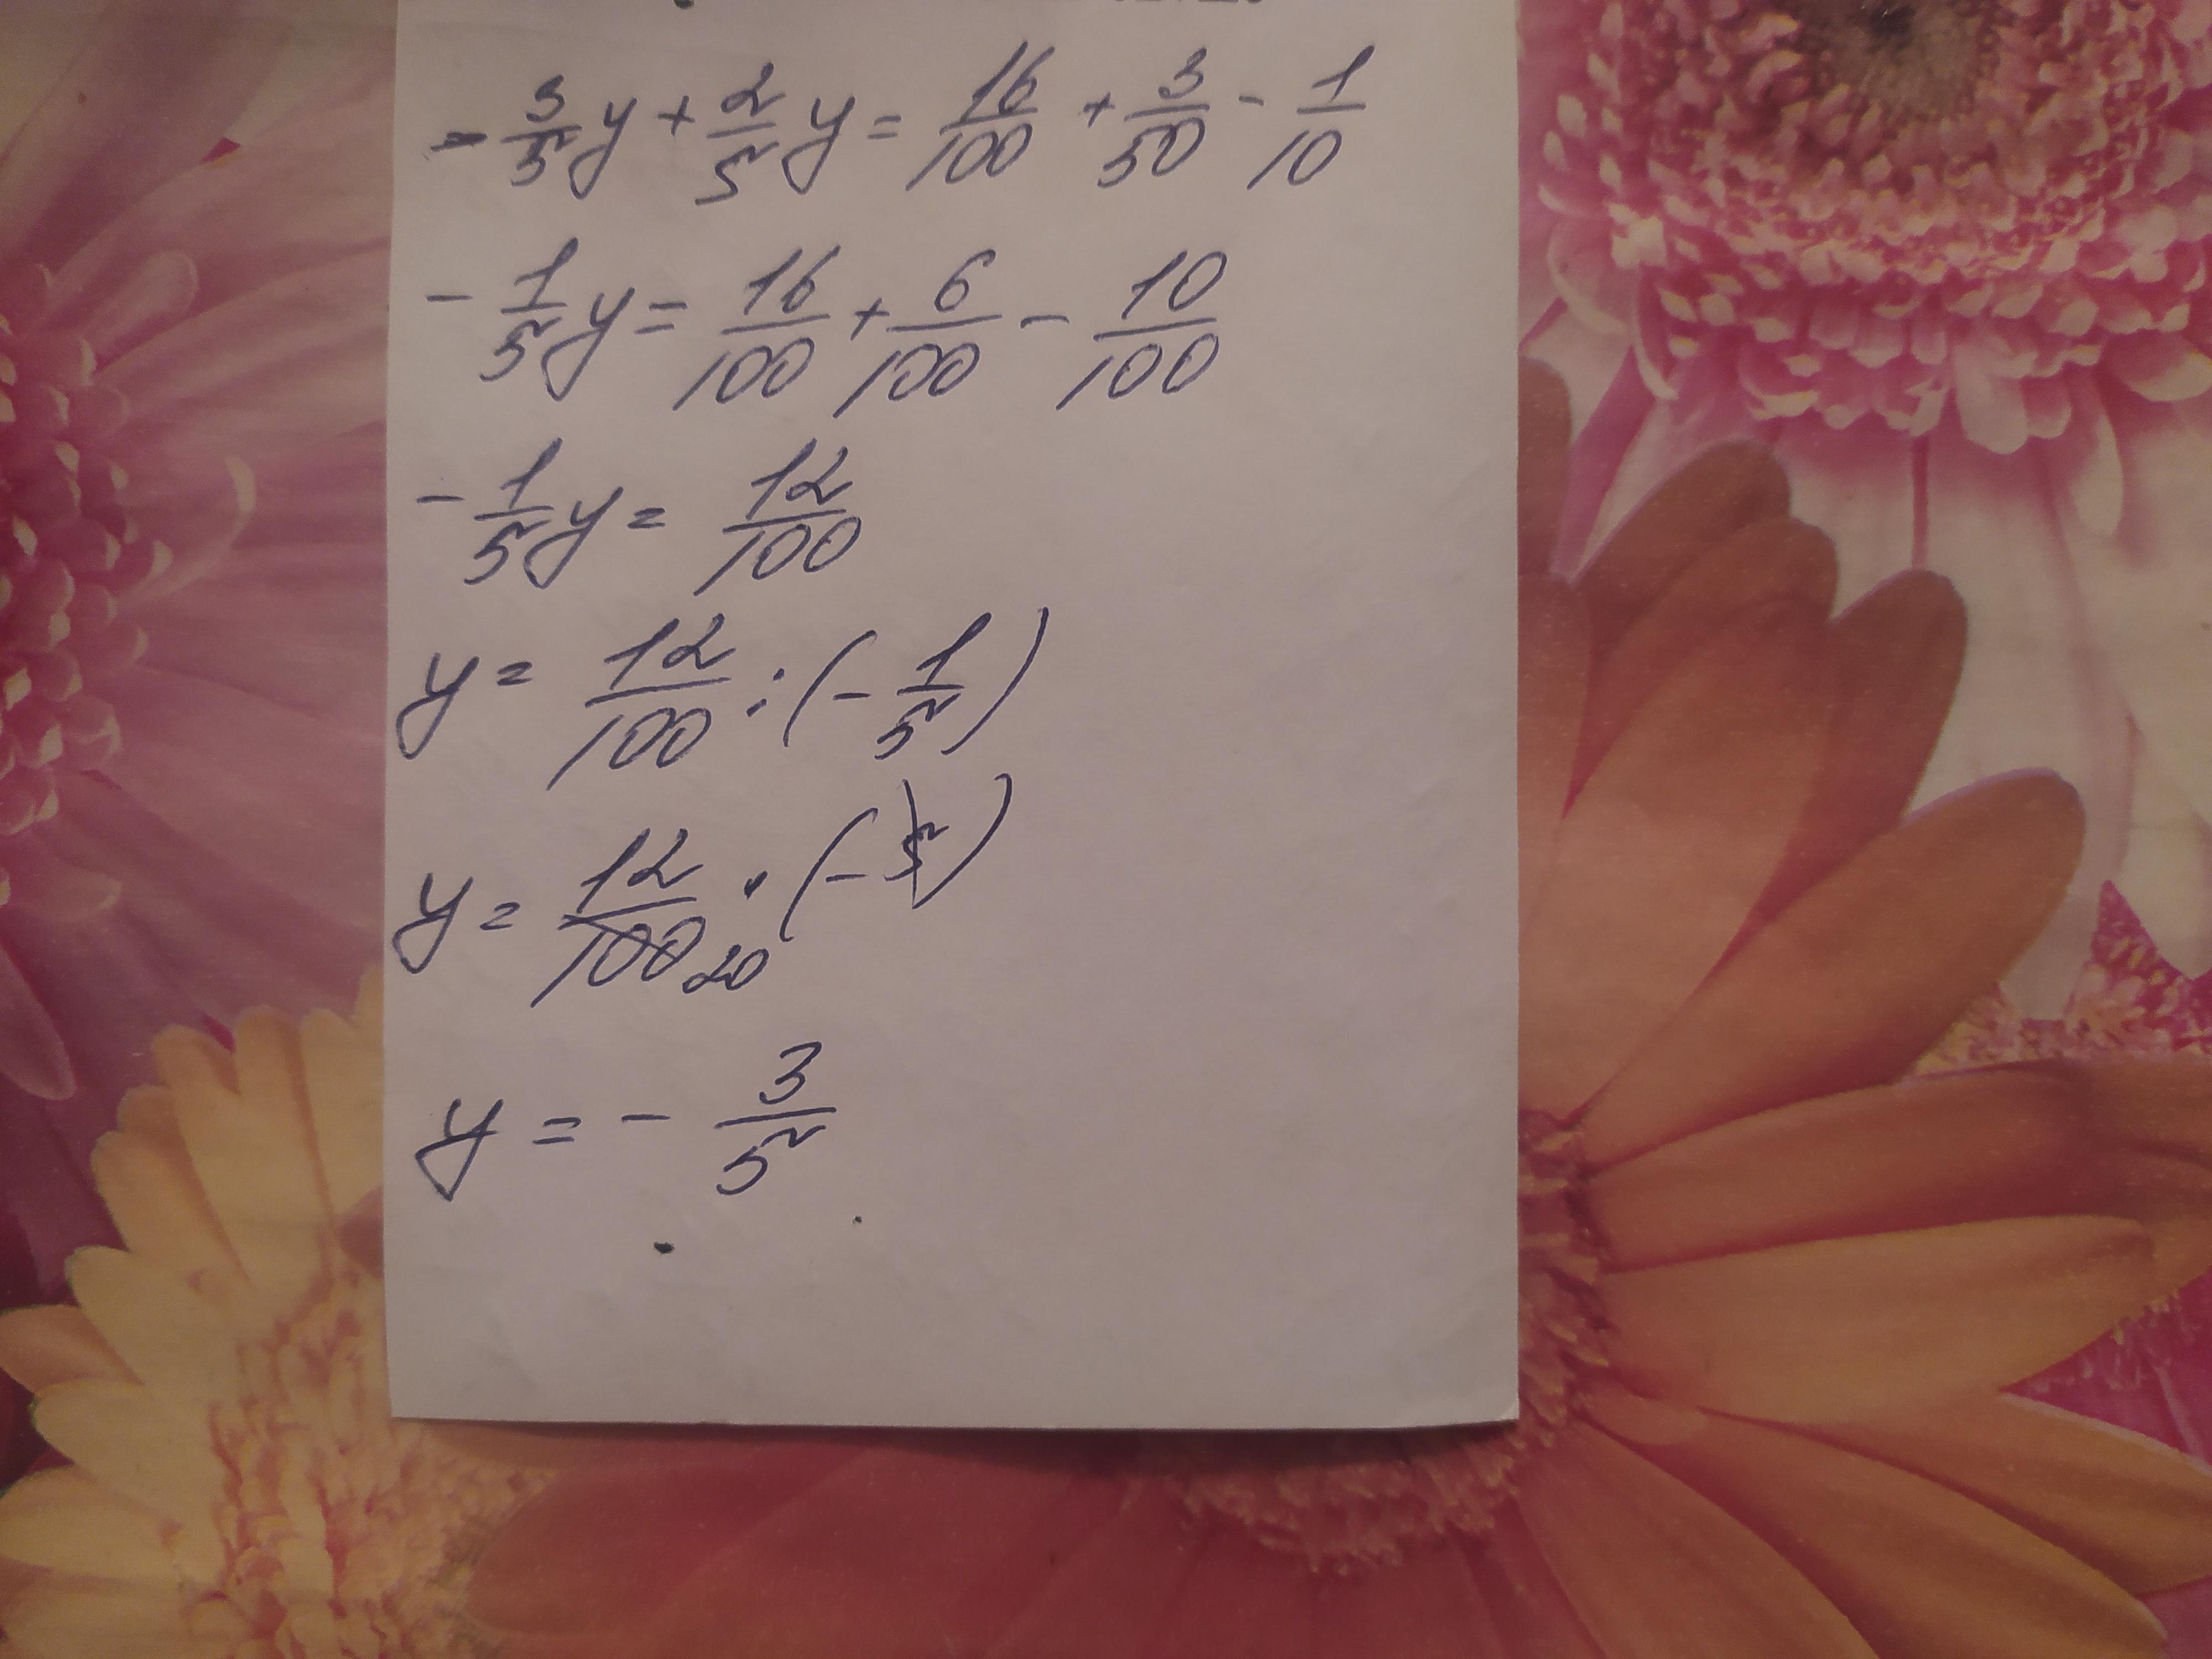 - 3/5 y + 2/5 y = 16/100 + 3/50 - 1/10
- 1/5 y = 16/100 + 6/100 - 10/100
- 1/5 y = 12/100
y = 12/100 : (- 1/5)
y = 12/100 20 · (- 5)
y = - 3/5